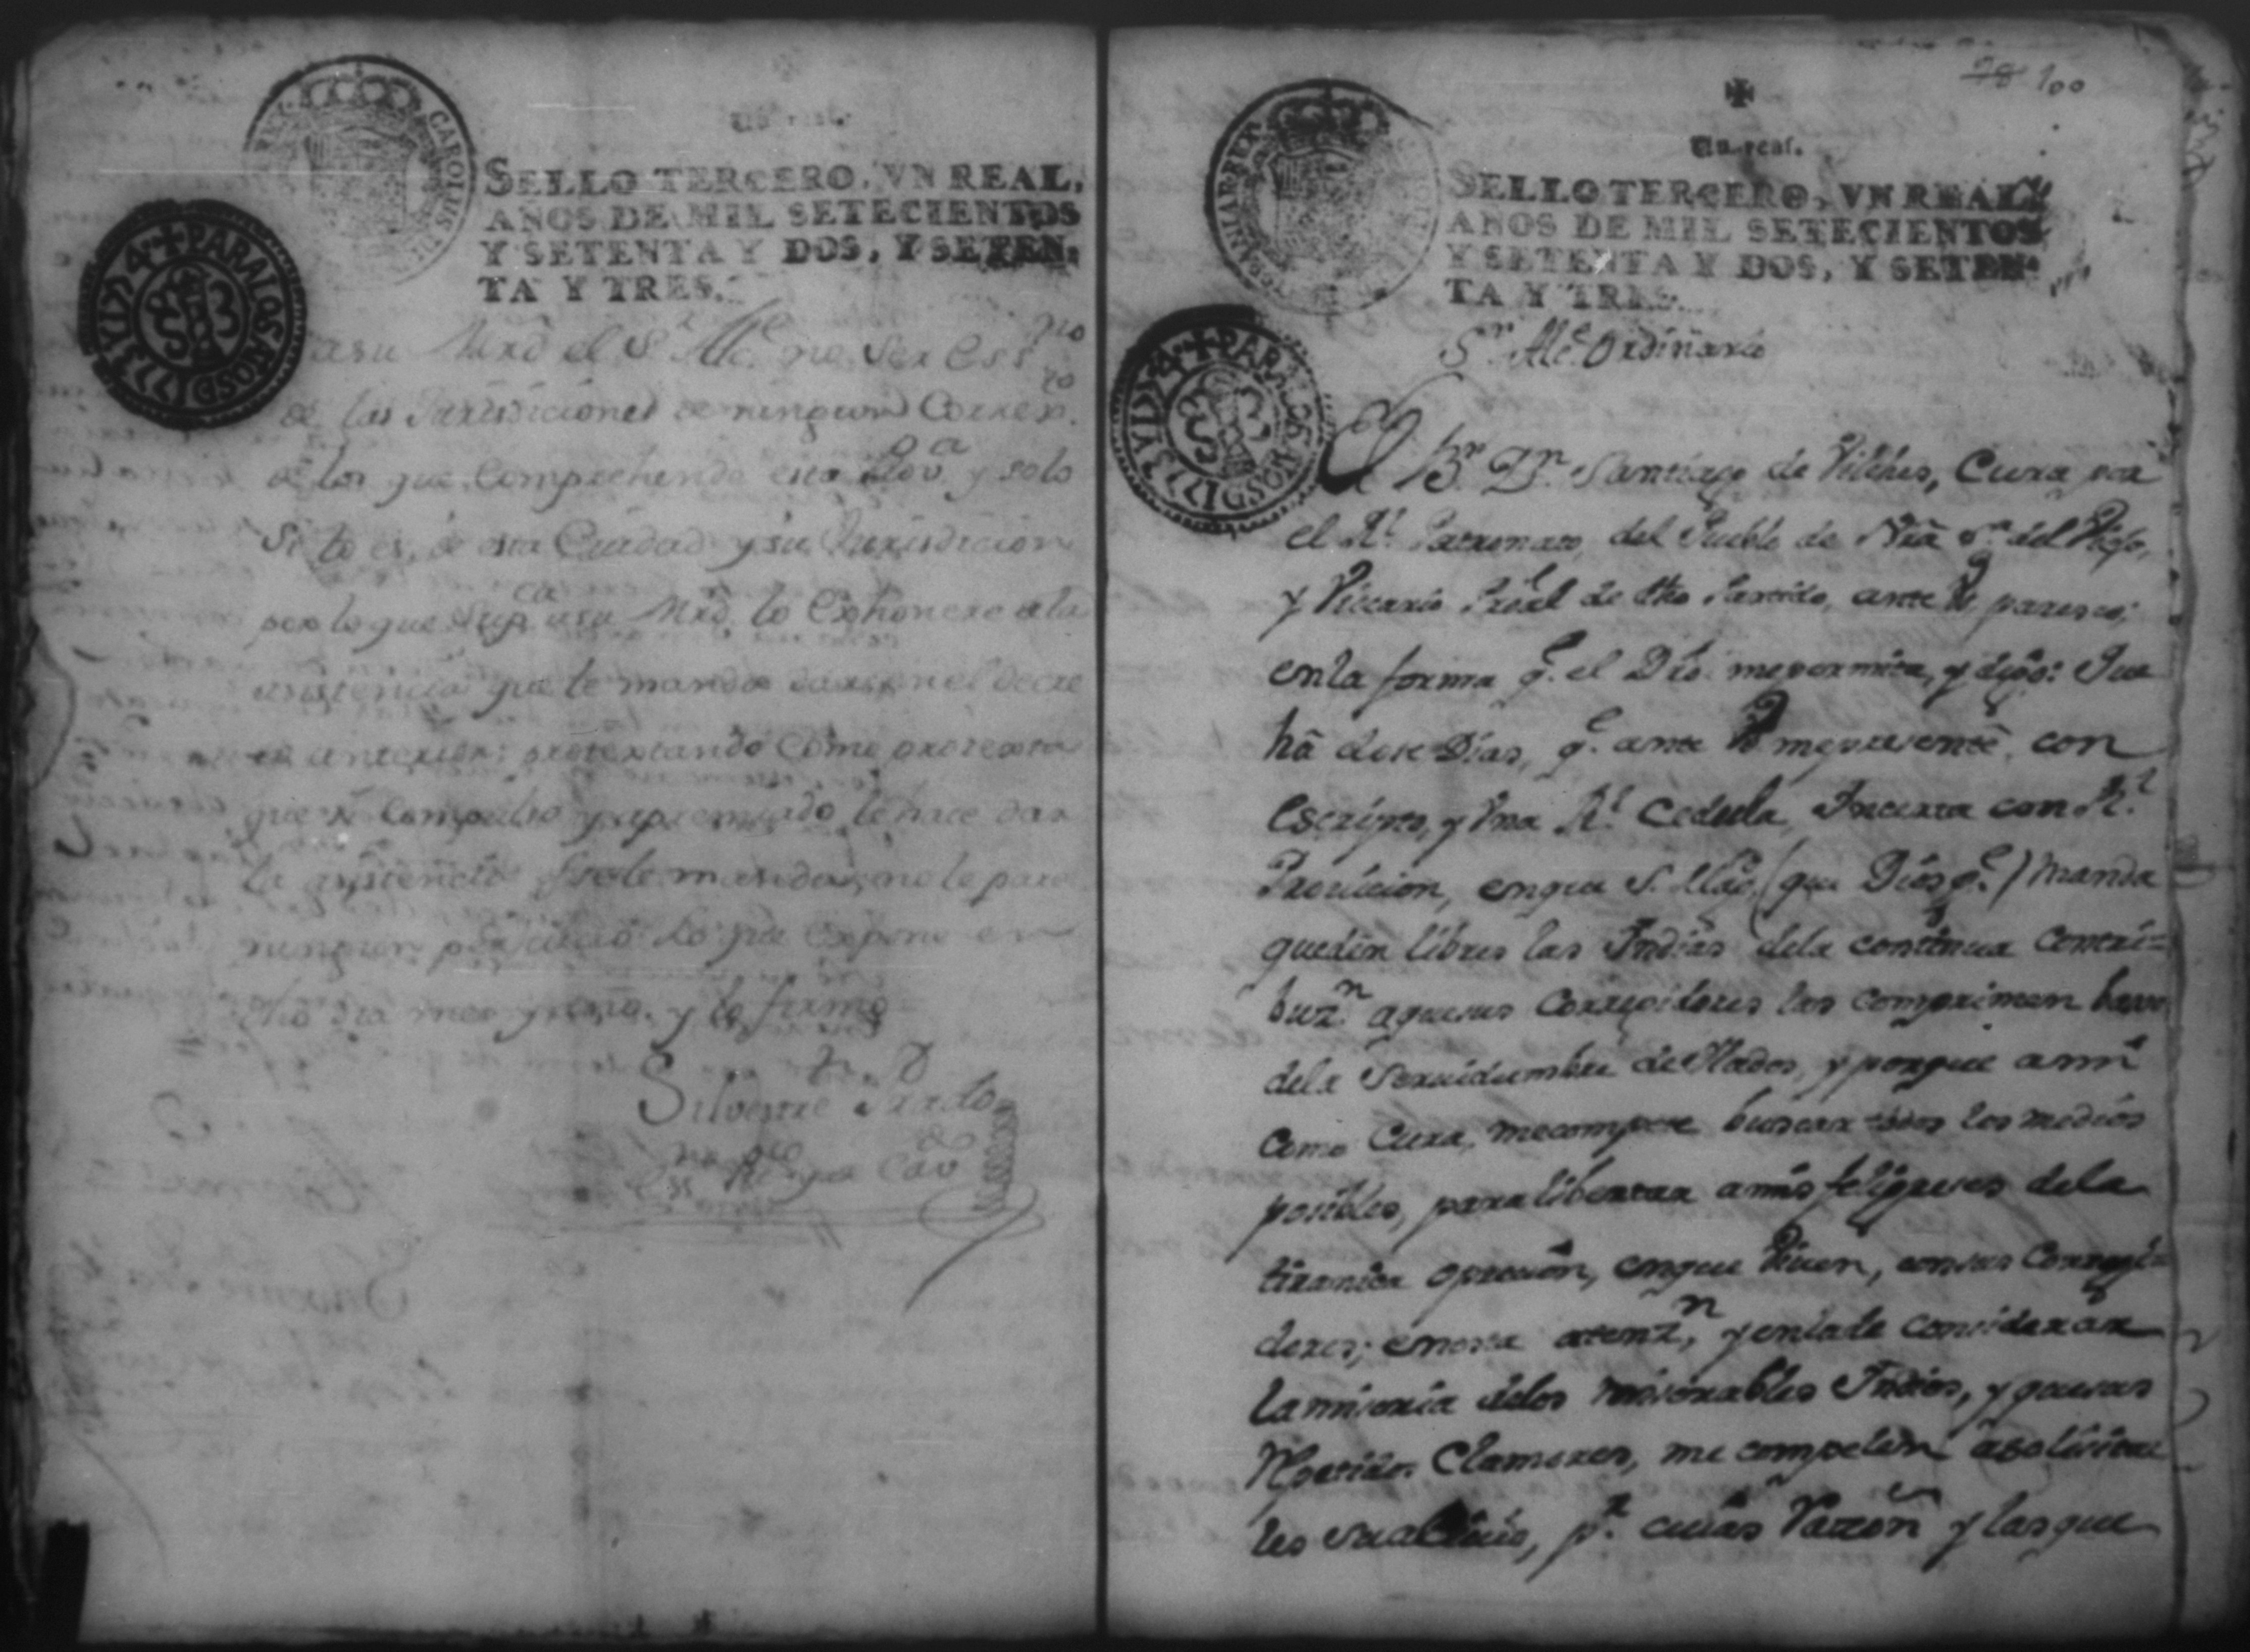 Un real.
SELLO TERCERO, VN REAL,
AÑOS DE MIL SETECIENTOS
Y SETENTA Y DOS, Y SETEN-
TA Y TRES.
CAROLUS
+ PARA LOS AÑOS D 1773 Y 1774
asu Mrd el Sr Alce no ser Essno
de las Jurisdiciones de ningun Correxor
de los que Comprehende esta Prova y solo
si lo es, de esta Ciudad y su Jurisdicion
por lo que supca asu Mrd lo Exhonere de la
asistencia que le manda dar en el decre
to anterior: protextando como protexta
que si compulso y apremiado le hace dar
la asistencia no le pare
ningun perjuicio lo que expone en
dho dia mes y año. y lo firmo
Silvestre Prado
Essno Puco Rl y de Cavdo
98 100
Un real.
SELLO TERCERO, VN REAL
AÑOS DE MIL SETECIENTOS
Y SETENTA Y DOS, Y SETEN-
TA Y TRES.
HISPANIAR REX
+ PARA LOS AÑOS D 1773 Y 1774
Sr Alce Ordinario
El Br Dn Santiago de Vilches, Cura por
el Rl Patronato, del Pueblo de Nra Sa del Viejo,
y Viccario Proal de dho Partido, ante V paresco;
en la forma qe el Dro me permita, y digo: Que
há dose Dias, qe ante V me presenté, con
Escripto, y Una Rl Cedula, Incerta con Rl
Provicion, en que S. Mag. (que Dios ge) manda
queden libres las Indias de la continua contri-
buzn a que sus Corregidores las comprimen
de la Servidumbre de Ilados, y porque a mi
como Cura, me compete buscar todos los medios
posibles, para libertar a mis feligreses de la
tiranica opresion, en que Viven, con sus Corregi-
dores; en esta atenzn, y en la de considerar
la miseria de los miserables Indios, y que sus
Clamores, me compelen a solicitar
les su alivio, pr cuias Razon y las que